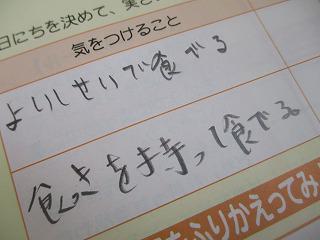 日にちを決めて、実
気をつけること
よいしせいで食べる
食っきを持って食べる
ふりかえってみ